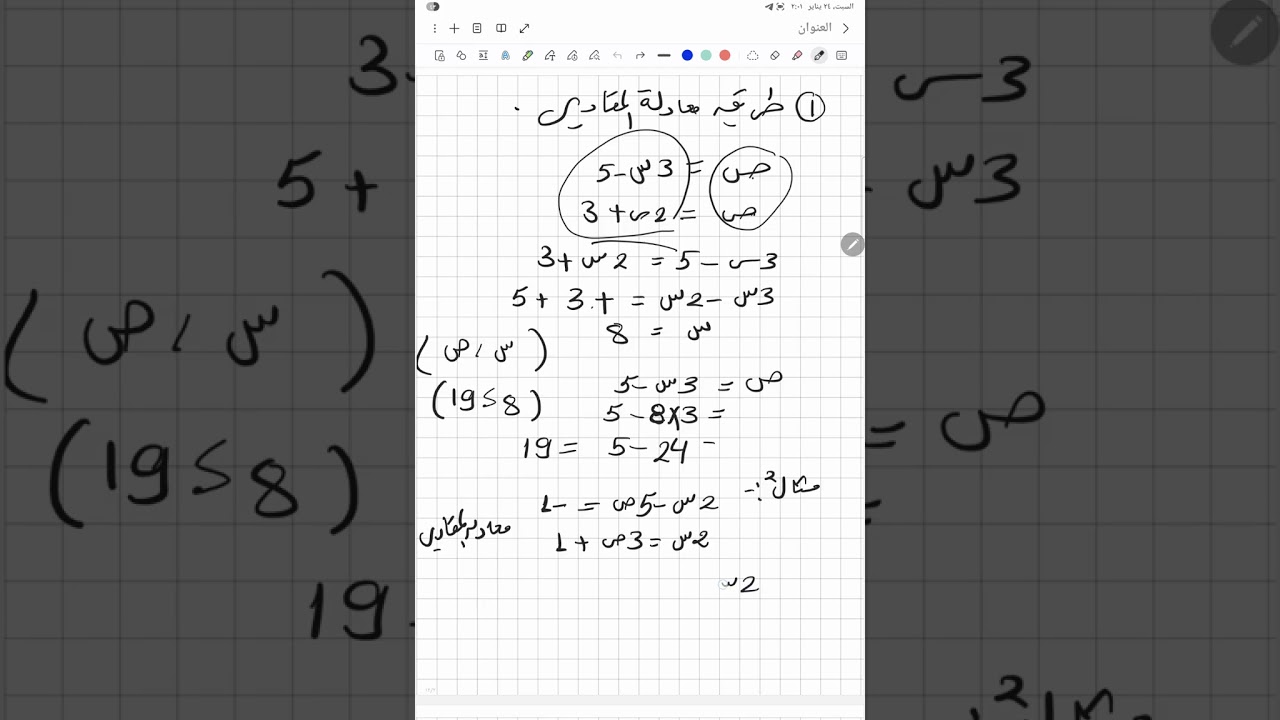 السبت، ٢٤ يناير ٢:٠١
العنوان
① طريقه معادلة المقادير .
ص = 3س - 5
ص = 2س + 3
3س - 5 = 2س + 3
3س - 2س = + 3 + 5
س = 8
(س ، ص)
(8 ، 19)
ص = 3س - 5
= 3×8 - 5
= 24 - 5 = 19
مثال 2 :-
2س - 5ص = -1
2س = 3ص + 1
معادلة المقادير
2س